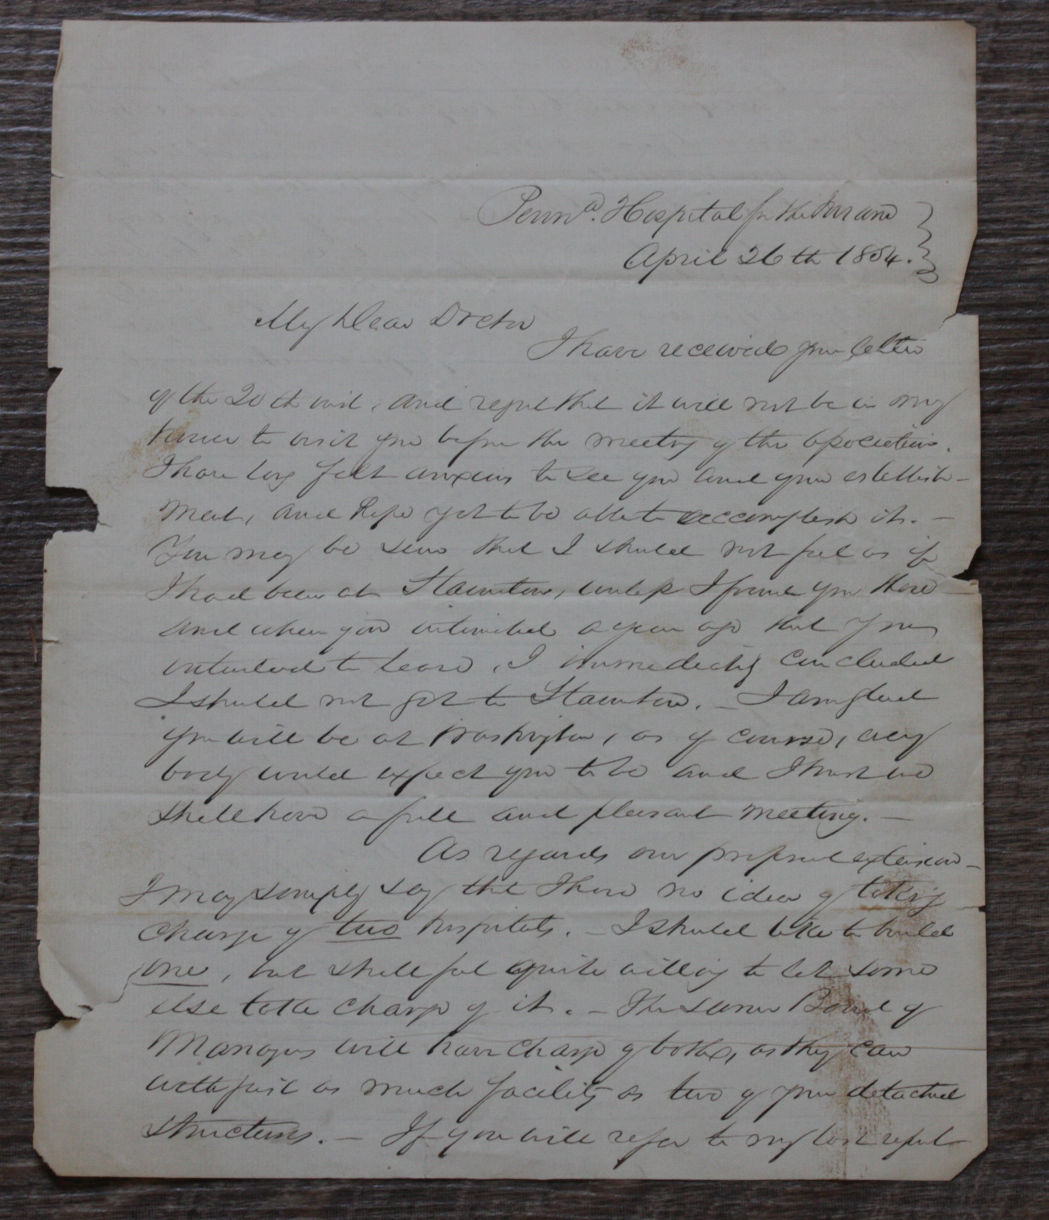 Penna. Hospital for the Insane
April 26th 1854.
My Dear Doctor
I have received your letter
of the 20th inst, and regret that it will not be in my
power to visit you before the meeting of the Association.
I have long felt anxious to see you and your establish-
ment, and hope yet to be able to accomplish it. -
You may be sure that I should not feel as if
I had been at Staunton, unless I found you there
and when you intimated a year ago that you
intended to leave, I immediately concluded
I should not get to Staunton. - I am glad
you will be at Washington, as of course, every
body would expect you to be and I trust we
shall have a full and pleasant meeting. -
As regards our proposed extension -
I may simply say that I have no idea of taking
charge of two hospitals. - I should like to build
one, but shall feel quite willing to let some
else take charge of it. - The same Board of
Managers will have charge of both, as they can
with just as much facility as two of your detached
structures. - If you will refer to my last report